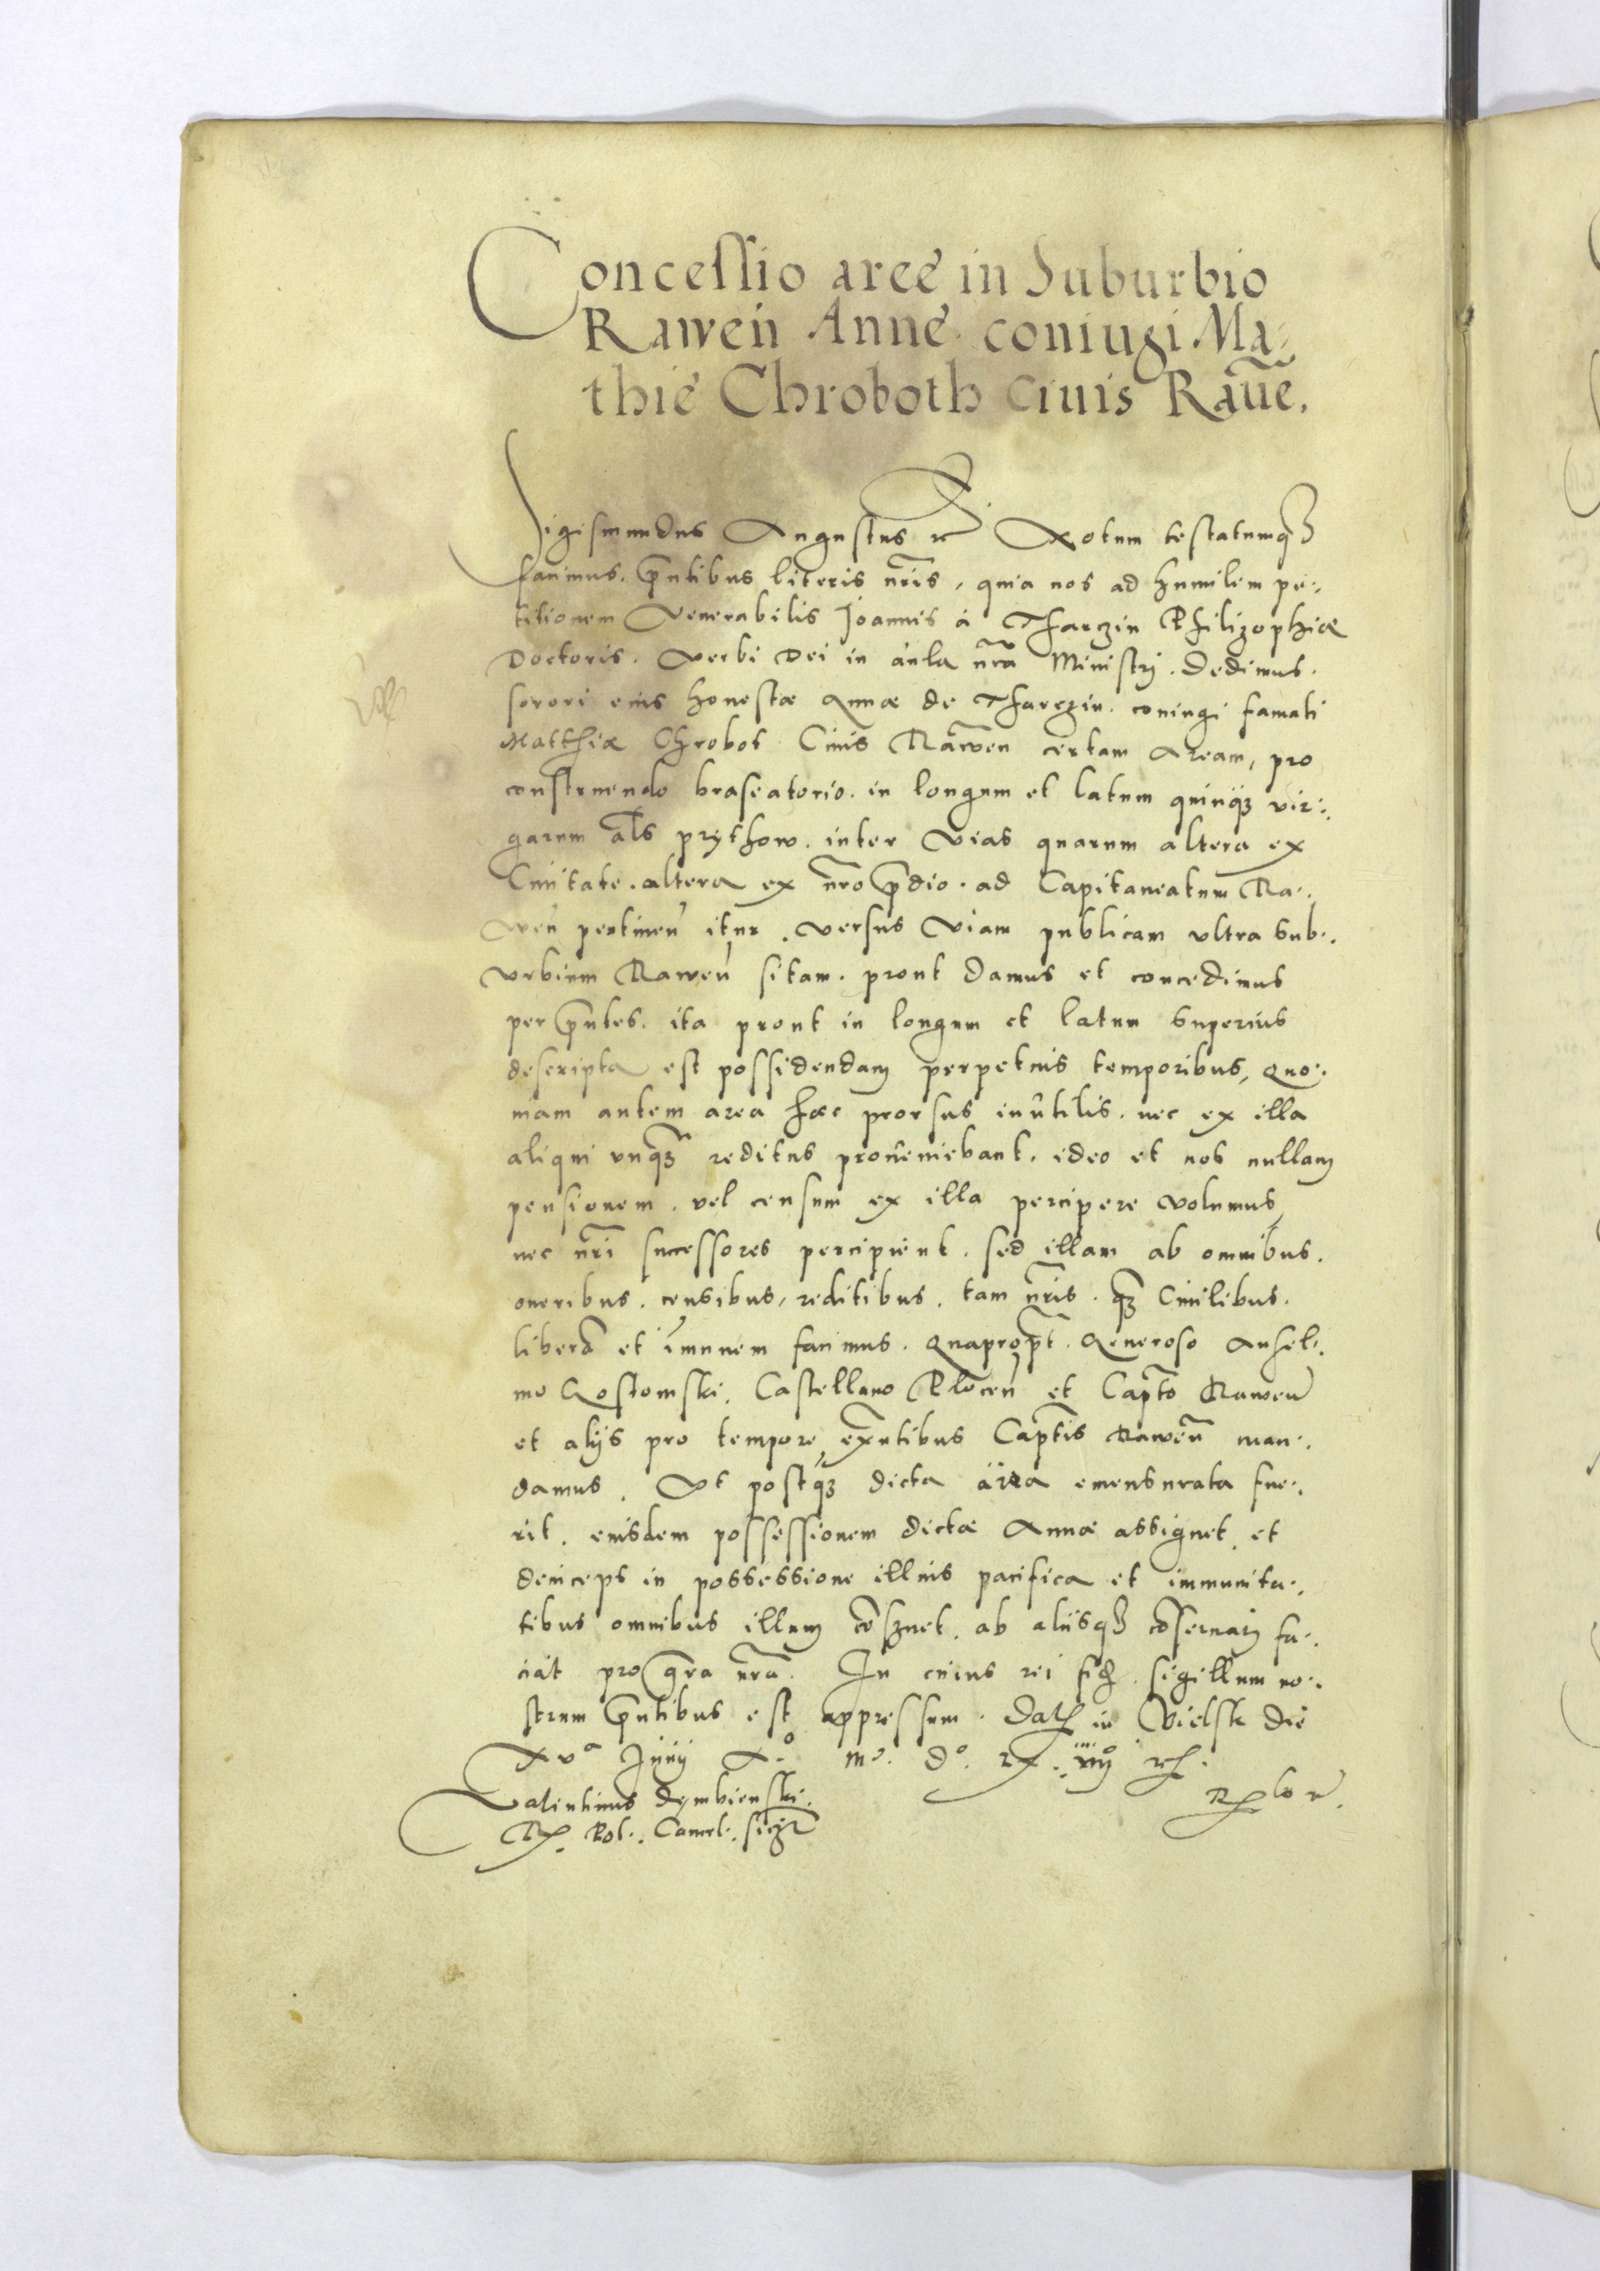 Concessio aree in Suburbio
Raweñ Anne coniugi Ma-
thie Chroboth Ciuis Rauẽ.
Sigismundus Augustus etc. Notum testatumq3
facimus, p̃ntibus literis nr̃is, quia nos ad humilem pe-
titionem Venerabilis Joannis á Tharczin Philizophiæ
Doctoris, verbi Dei in aula nr̃a Ministrj, dedimus
sorori eius honestæ Annæ de Tharczin, coniugi famati
Matthiæ Chrobot Ciuis Rawen certam Aream, pro
construendo braseatorio, in longum et latum quinq3 vir-
garum al̃s prythow, inter Vias quarum altera ex
Ciuitate, altera ex nr̃o p̃dio, ad Capitaneatum Ra-
weñ pertineñ itur, versus Viam publicam vltra Sub-
vrbium Raweñ sitam, prout damus et concedimus
per p̃ntes, ita prout in longum et latum Superius
descripta est possidendam perpetuis temporibus, Quo-
niam autem area hæc prorsus inutilis, nec ex illa
aliqui vnq3 reditus proueniebant, ideo et nos nullam
pensionem, vel censum ex illa percipere volumus,
nec nr̃i successores percipient, sed illam ab omnibus
oneribus, censibus, reditibus, tam nr̃is, q3 Ciuilibus,
liberã et im̃unem facimus, Quaprop̃t, Generoso Ansel-
mo Gostomski, Castellano Ploceñ et Cap̃to Raweñ
et alijs pro tempore ex̃ntibus Cap̃tis Raweñ man-
damus, Vt postq3 dicta area emensurata fue-
rit, eiusdem possessionem dictæ Annæ assignet, et
deinceps in possessione illius pacifica et immunita-
tibus omnibus illam cõseruet, ab aliisq3 cõseruari fa-
ciat pro gr̃a nr̃a. In cuius rei fid̃, sigillum no-
strum p̃ntibus est appressum. Dat̃ in Bielsk die
xvª Junij Aº. Mº. Dº. LX. iiijº
Valentinus Dembienski
R. Pol. Cancel.